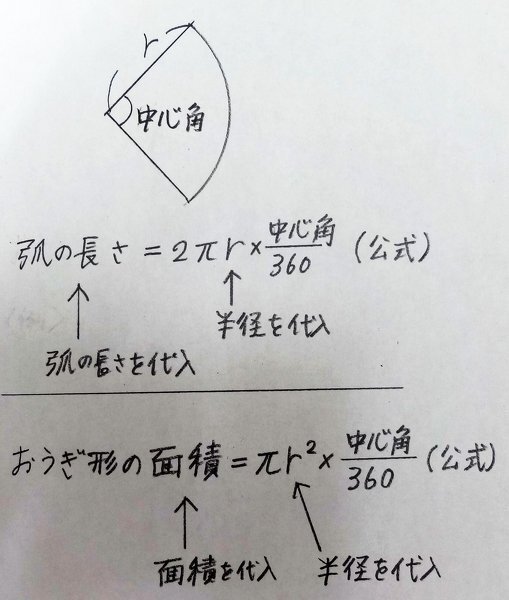 r
中心角
弧の長さ = 2πr × 中心角/360 (公式)
半径を代入
弧の長さを代入
おうぎ形の面積 = πr² × 中心角/360 (公式)
面積を代入 半径を代入